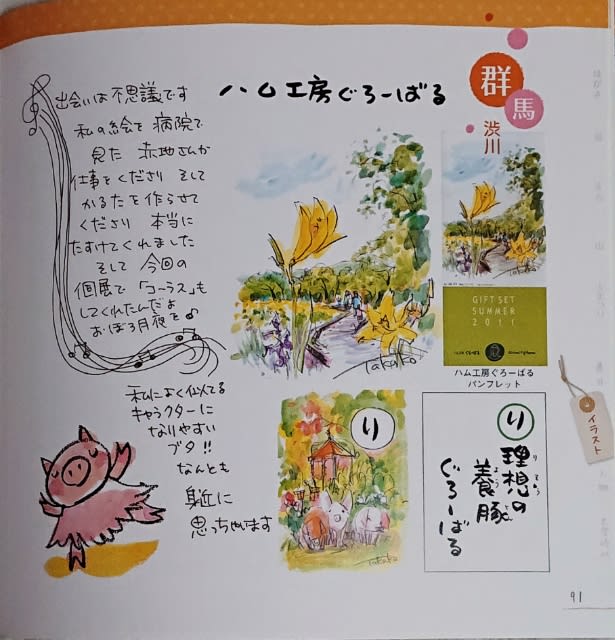 ハム工房ぐろーばる
群馬
渋川
出会いは不思議です
私の絵を病院で
見た 赤地さんが
仕事をくださり そして
かるたを作らせて
くださり 本当に
たすけてくれました
そして 今回の
個展で「コーラス」も
してくれたんだよ
おぼろ月夜を♪
Takako
GIFT SET
SUMMER
2011
ハム工房ぐろーばる
パンフレット
イラスト
私によく似てる
キャラクターに
なりやすい
ブタ!!
なんとも
身近に
思っちゃいます
り
Takako
り
理想の
りそう
養豚
ようとん
ぐろーばる
91